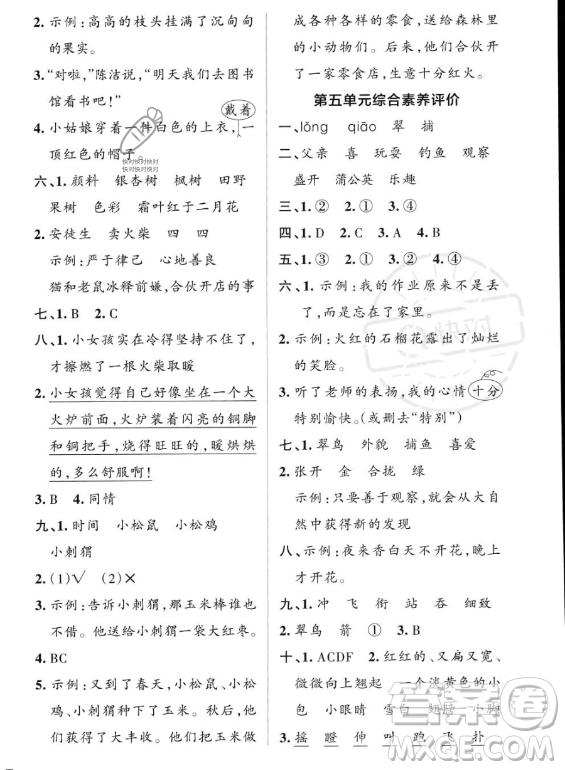 2. 示例:高高的枝头挂满了沉甸甸
的果实。
3. “对啦,”陈洁说,“明天我们去图书
馆看书吧!”
戴着
4. 小姑娘穿着一件白色的上衣,一
顶红色的帽子。
快对快对快对
快对快对快对
六、1. 颜料 银杏树 枫树 田野
果树 色彩 霜叶红于二月花
2. 安徒生 卖火柴 四 四
示例:严于律己 心地善良
猫和老鼠冰释前嫌,合伙开店的事
七、1. B 2. C
八、1. 小女孩实在冷得坚持不住了,
才擦燃了一根火柴取暖
2. 小女孩觉得自己好像坐在一个大
火炉前面,火炉装着闪亮的铜脚
和铜把手,烧得旺旺的,暖烘烘
的,多么舒服啊!
3. B 4. 同情
九、1. 时间 小松鼠 小松鸡
小刺猬
2. (1)√ (2)×
3. 示例:告诉小刺猬,那玉米棒谁也
不借。他送给小刺猬一袋大红枣。
4. BC
5. 示例:又到了春天,小松鼠、小松
鸡、小刺猬种下了玉米。秋后,他们
获得了大丰收。他们把玉米做
成各种各样的零食,送给森林里
的小动物们。后来,他们合伙开
了一家零食店,生意十分红火。
第五单元综合素养评价
一、lǒng qiāo 翠 捕
二、父亲 喜 玩耍 钓鱼 观察
盛开 蒲公英 乐趣
三、1. ② 2. ① 3. ④
四、1. D 2. C 3. A 4. B
五、1. ③ 2. ① 3. ② 4. ④
六、1. 示例:我的作业原来不是丢
了,而是忘在了家里。
2. 示例:火红的石榴花露出了灿烂
的笑脸。
3. 听了老师的表扬,我的心情十分
特别愉快。(或删去“特别”)
七、1. 翠鸟 外貌 捕鱼 喜爱
2. 张开 金 合拢 绿
示例:只要善于观察,就会从大自
然中获得新的发现
八、示例:夜来香白天不开花,晚上
才开花。
九、1. 冲 飞 衔 站 吞 细致
2. 翠鸟 箭 ① 3. B
十、1. ACDF 2. 红红的、又扁又宽、
微微向上翘起 一个淡黄色的小
包 小眼睛 雪白 翅膀 小脚
3. 摇 蹬 伸 叫 跑 飞 扑
快对
答案圈
MXQE.COM